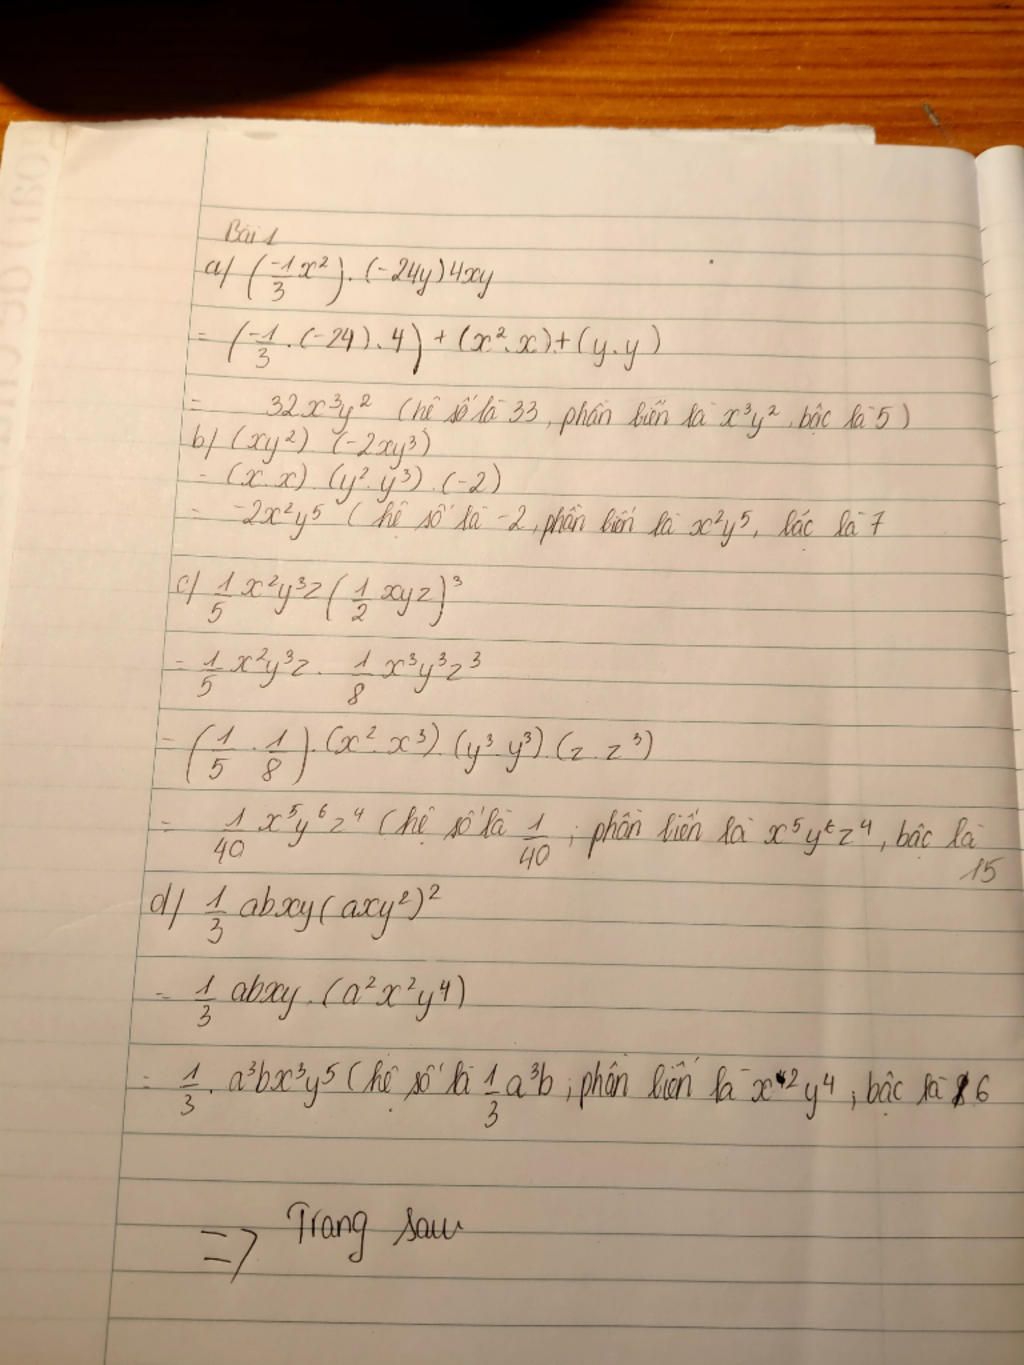 Bài 1
a/ (-1/3 x²).(-24y)4xy
= (-1/3 .(-24).4) + (x².x)+(y.y)
= 32x³y² (hệ số là 33, phần biến là x³y², bậc là 5)
b/ (xy²) (-2xy³)
= (x.x).(y².y³).(-2)
= -2x²y⁵ (hệ số là -2, phần biến là x²y⁵, bác là 7
c/ 1/5 x²y³z(1/2 xyz)³
= 1/5 x²y³z . 1/8 x³y³z³
= (1/5 . 1/8).(x².x³).(y³.y³).(z.z³)
= 1/40 x⁵y⁶z⁴ (hệ số là 1/40 ; phần biến là x⁵y⁶z⁴, bậc là
15
d/ 1/3 abxy(axy²)²
= 1/3 abxy.(a²x²y⁴)
= 1/3 . a³bx³y⁵ (hệ số là 1/3 a³b ; phần biến là x²y⁴ ; bậc là 6
=> Trang sau